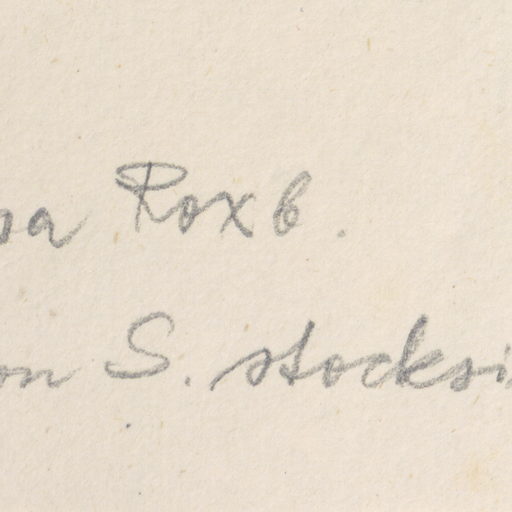 sa Roxb.
on S. stocksi